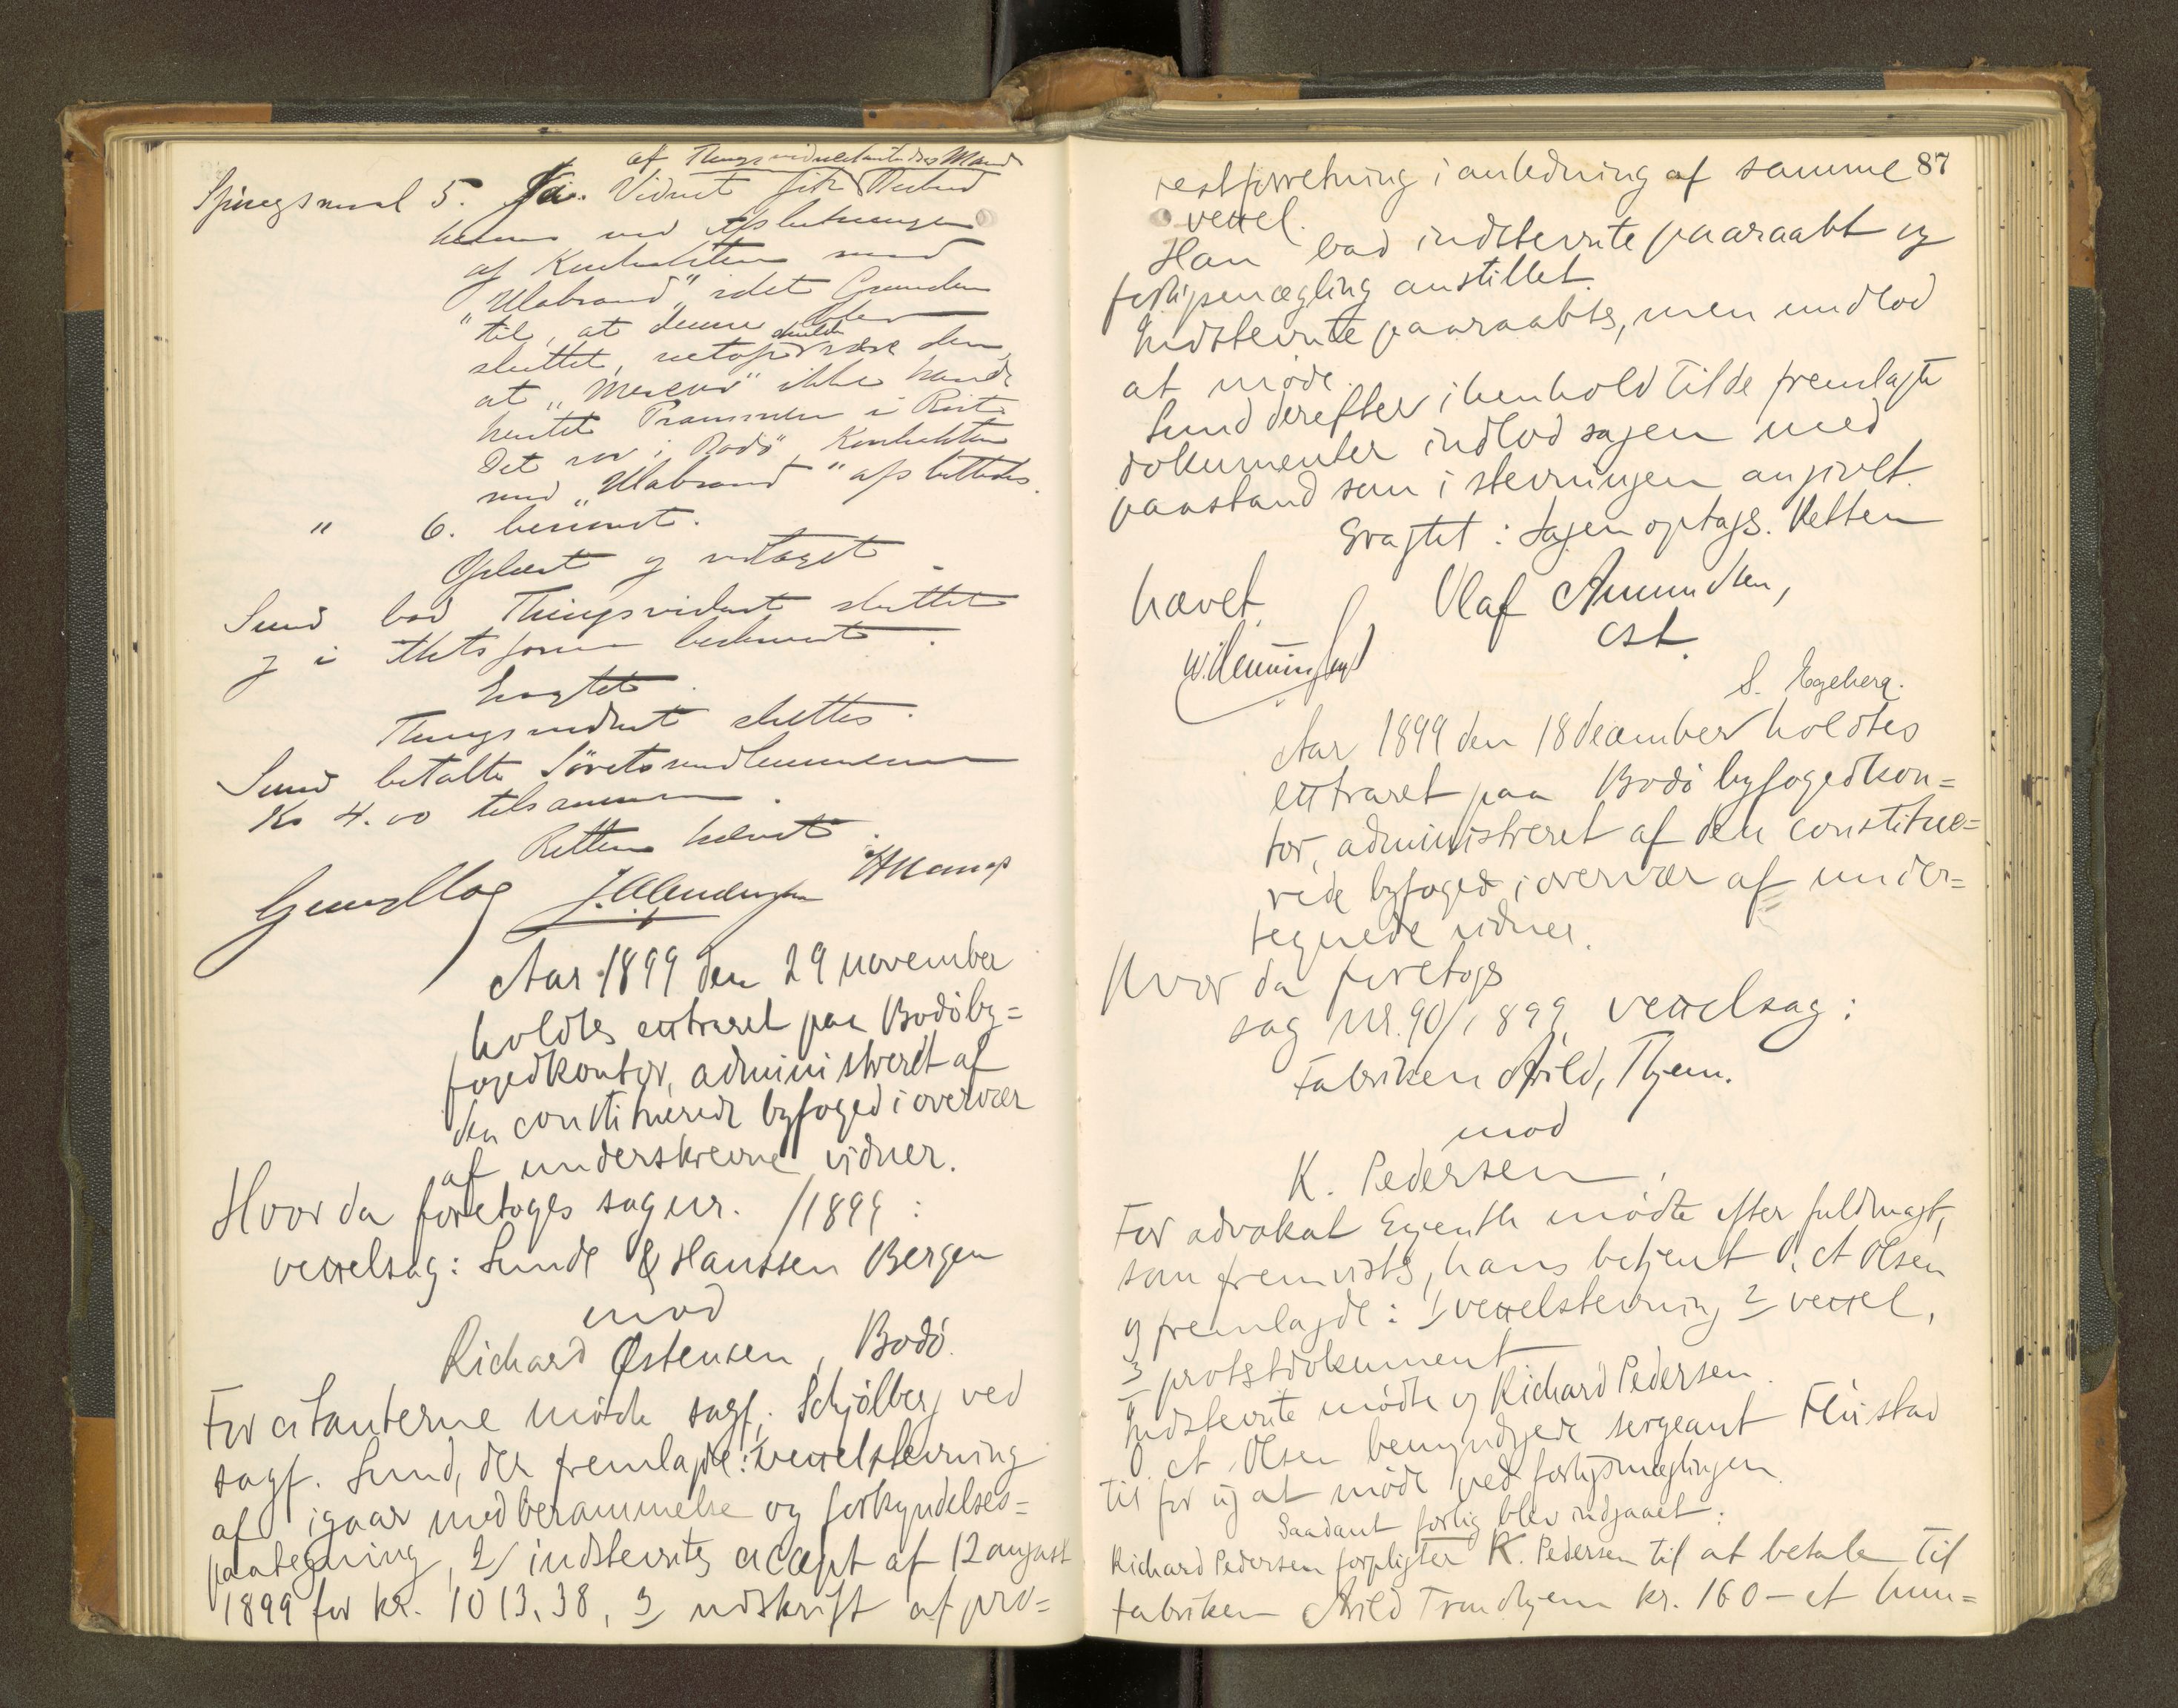 af Thingsvidnets Mand
Spørgsmaal 5. Ja. Vidnet fik
ved Afslutningen
af Kontrakten med
"Ulabrand", idet Grunden
til, at denne blev
sluttet, netop skulde være den
at "Mercur" ikke havde
hentet Prammen i Rist
Det var i Bodø, Kontrakten
med "Ulabrand" afsluttedes.
" 6. benyttet.
Oplæst og vedtaget.
Sund bad Thingsvidnet sluttet
og i Retsform beskrevet.
Eragtet
Thingsvidnet sluttes.
Sund betalte Søretsmedlemmerne
Kr 4.00 tilsammen.
Retten hævet.
Aar 1899 den 29 november
holdtes extraret paa Bodø by=
fogedkontor, administreret af
den constituerede byfoged i overvær
af underskrevne vidner.
Hvor da foretoges sag nr. /1899:
vexelsag: Sunde & Hanssen Bergen
mod
Richard Østensen, Bodø.
For citanterne mødte sagf. Schjølberg ved
sagf. Sund, der fremlagde: 1/ vexelstevning
af igaar med berammelse og forkyndelses=
paategning, 2/ indstevntes accept af 12 august
1899 for kr. 1013,38, 3/ udskrift af pro=
87
testforretning i anledning af samme
vexel.
Han bad indstevnte paaraabt og
forligsmægling anstillet.
Indstevnte paaraabtes, men undlod
at møde.
Sund derefter i henhold til de fremlagte
dokumenter indlod sagen med
paastand som i stevningen angivet.
Eragtet: Sagen optages. Retten
hævet.
Olaf Amundsen,
cst.
S. Egeberg.
Aar 1899 den 18 december holdtes
extraret paa Bodø byfogedkon=
tor, administreret af den constitue=
rede byfoged i overvær af under=
tegnede vidner.
Hvor da foretoges
sag nr. 90/1899, vexelsag:
Fabriken Arild, Thjem.
mod
K. Pedersen.
For advokat mødte efter fuldmagt,
som fremvistes, hans betjent O. A Olsen
og fremlagde: 1/ vexelstevning 2/ vexel,
3/ protestdokument
Indstevnte mødte og Richard Pedersen.
O. A. Olsen bemyndigede sergeant Flisstad
til for sig at møde ved forligsmæglingen.
Saadant forlig blev indgaaet:
Richard Pedersen forpligter K. Pedersen til at betale til
fabriken Arild Trondhjem kr. 160 – et hun=